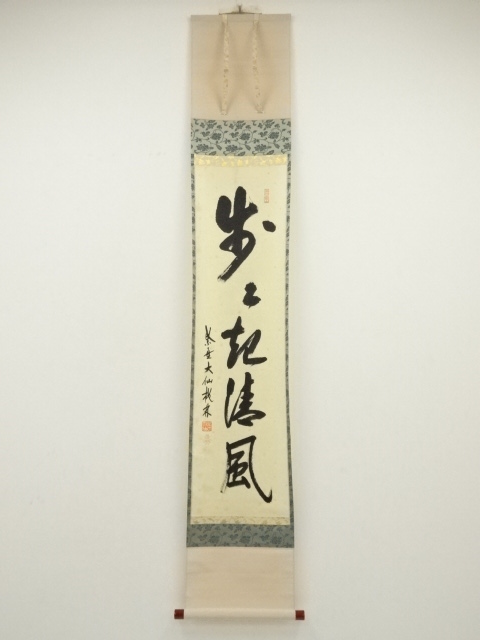 歩々起清風
紫野大仙桃林